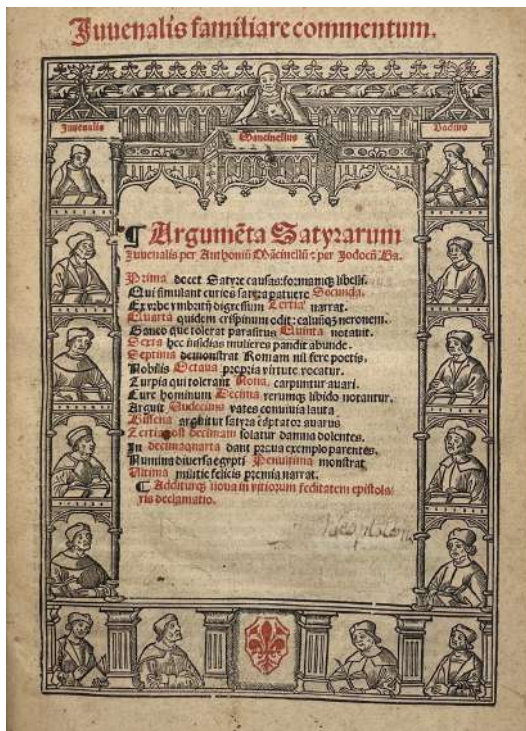 Juuenalis familiare commentum.
Juuenalis
Mancinellus
Badius
¶ Argumẽta Satyrarum
Juuenalis per Anthoniũ Mãcinellũ ⁊ per Jodocũ Ba.
Prima docet Satyre causas: formamq; libelli.
Qui simulant curios satyra patuere Secunda.
Ex vrbe vmbritũ digressum Tertia narrat.
Quarta quidem crispinum odit: caluũq; neronem.
Ganeo que tolerat parasitus Quinta notauit.
Sexta hec insidias mulieres pandit abunde.
Septima demonstrat Romam nil fere poetis.
Nobilis Octaua propria virtute vocatur.
Turpia qui tolerant Nona. carpuntur auari.
Cure hominum Decima rerumq; libido notantur.
Arguit Undecima vates conuiuia lauta
Bissena arguitur satyra cãptator auarus
Tertia post decimam solatur damna dolentes.
In decimaquarta dant praua exemplo parentes.
Numina diuersa egypti Penultima monstrat
Ultima militie felicis premia narrat.
¶ Additurq; noua in vitiorum feditatem epistola-
ris declamatio.